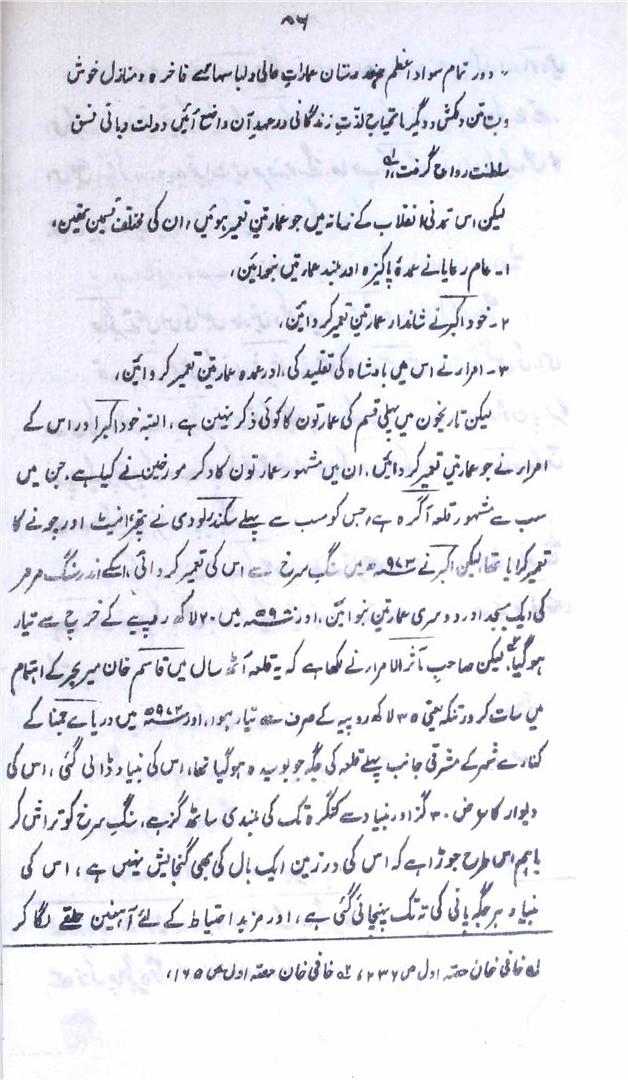 ۷۶
دور تمام سواد اعظم ہندوستان عمارات عالی و لباسہائے فاخرہ و منازل خوش
و دلکش و دیگر مایحتاج لذت زندگانی در عہد آن واضح آئین دولت و بانی نسق
سلطنت رواج گرفت،
لیکن اس تمدنی انقلاب کے زمانہ میں جو عمارتین تعمیر ہوئیں، ان کی مختلف قسمین تھین،
۱۔ عام رعایا نے عمدہ پاکیزہ اور بلند عمارتیں بنوائین،
۲۔ خود اکبر نے شاندار عمارتین تعمیر کروائین،
۳۔ امراء نے اس میں بادشاہ کی تقلید کی، اور عمدہ عمارتین تعمیر کروائین،
لیکن تاریخون میں پہلی قسم کی عمارتون کا کوئی ذکر نہین ہے، البتہ خود اکبر اور اس کے
امراء نے جو عمارتیں تعمیر کروائیں، ان میں مشہور عمارتون کا ذکر مورخین نے کیا ہے۔ جن میں
سب سے مشہور قلعہ آگرہ ہے، جس کو سب سے پہلے سکندر لودی نے پتھر، اینٹ اور چونے کا
تعمیر کرایا تھا، لیکن اکبر نے ۹۷۳ھ میں سنگ سرخ سے اس کی تعمیر کروائی، اسکے اندر سنگ مرمر
کی ایک مسجد اور دوسری عمارتین بنوائین، اور میں ۷۰ لاکھ روپیے کے خرچ سے تیار
ہوگیا، لیکن صاحب مآثر الامراء نے لکھا ہے کہ یہ قلعہ آٹھ سال میں قاسم خان میر بحر کے اہتمام
میں سات کرور تنکہ یعنی ۳۵ لاکھ روپیہ کے صرف سے تیار ہوا، اور ۹۷۲ھ میں دریائے جمنا کے
کنارے شہر کے مشرقی جانب پہلے قلعہ کی جگہ جو بوسیدہ ہوگیا تھا، اس کی بنیاد ڈالی گئی، اس کی
دیوار کا عرض ۳۰ گز اور بنیاد سے کنگرہ تک کی بلندی ساٹھ گز ہے، سنگ سرخ کو تراش کر
باہم اس طرح جوڑا ہے کہ اس کی درز مین ایک بال کی بھی گنجائش نہیں ہے، اس کی
بنیاد ہر جگہ پانی کی تہ تک پہنچائی گئی ہے، اور مزید احتیاط کے لئے آہنین حلقے لگا کر
لہ خافی خان حصہ اول ص ۲۳۶، ۲ہ خافی خان حصہ اول ص ۱۶۵،